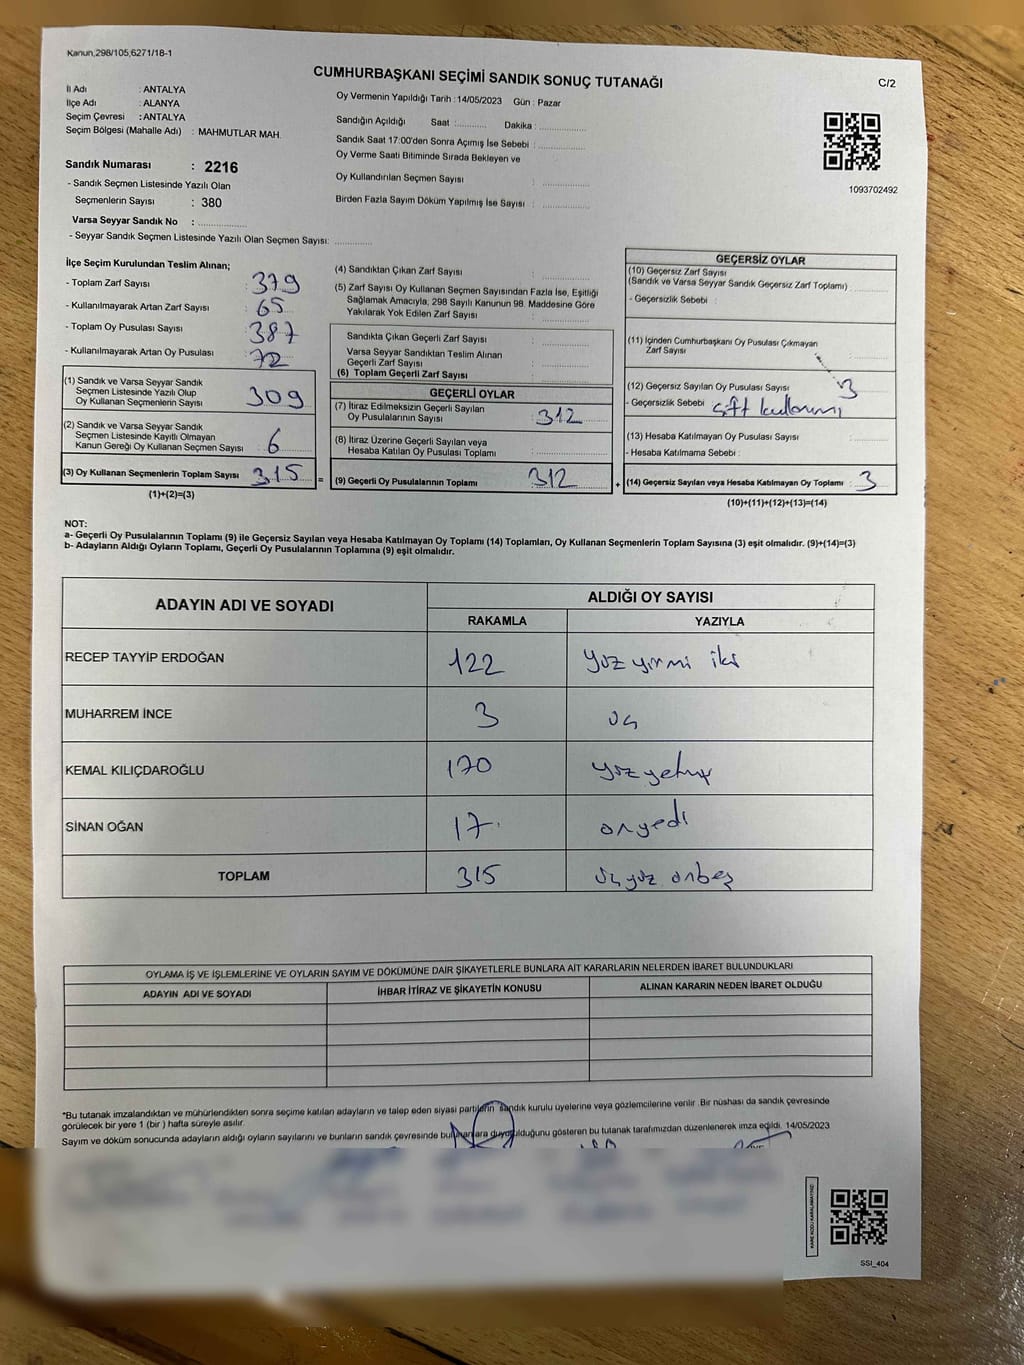 Kanun,298/105,6271/18-1
CUMHURBAŞKANI SEÇİMİ SANDIK SONUÇ TUTANAĞI
C/2
İl Adı : ANTALYA
İlçe Adı : ALANYA
Seçim Çevresi : ANTALYA
Seçim Bölgesi (Mahalle Adı) : MAHMUTLAR MAH.
Sandık Numarası : 2216
- Sandık Seçmen Listesinde Yazılı Olan
Seçmenlerin Sayısı : 380
Varsa Seyyar Sandık No : ..............
- Seyyar Sandık Seçmen Listesinde Yazılı Olan Seçmen Sayısı: ............
Oy Vermenin Yapıldığı Tarih :14/05/2023 Gün : Pazar
Sandığın Açıldığı Saat :........... Dakika : ................
Sandık Saat 17:00'den Sonra Açımış İse Sebebi : ................
Oy Verme Saati Bitiminde Sırada Bekleyen ve
Oy Kullandırılan Seçmen Sayısı : ................
Birden Fazla Sayım Döküm Yapılmış İse Sayısı : ................
1093702492
İlçe Seçim Kurulundan Teslim Alınan;
- Toplam Zarf Sayısı : 379
- Kullanılmayarak Artan Zarf Sayısı : 65
- Toplam Oy Pusulası Sayısı : 387
- Kullanılmayarak Artan Oy Pusulası : 72
(1) Sandık ve Varsa Seyyar Sandık
Seçmen Listesinde Yazılı Olup
Oy Kullanan Seçmenlerin Sayısı : 309
(2) Sandık ve Varsa Seyyar Sandık
Seçmen Listesinde Kayıtlı Olmayan
Kanun Gereği Oy Kullanan Seçmen Sayısı : 6
(3) Oy Kullanan Seçmenlerin Toplam Sayısı : 315 =
(1)+(2)=(3)
(4) Sandıktan Çıkan Zarf Sayısı : ................
(5) Zarf Sayısı Oy Kullanan Seçmen Sayısından Fazla İse, Eşitliği
Sağlamak Amacıyla, 298 Sayılı Kanunun 98. Maddesine Göre
Yakılarak Yok Edilen Zarf Sayısı : ................
Sandıkta Çıkan Geçerli Zarf Sayısı : ................
Varsa Seyyar Sandıktan Teslim Alınan
Geçerli Zarf Sayısı : ................
(6) Toplam Geçerli Zarf Sayısı : ................
GEÇERLİ OYLAR
(7) İtiraz Edilmeksizin Geçerli Sayılan
Oy Pusulalarının Sayısı : 312
(8) İtiraz Üzerine Geçerli Sayılan veya
Hesaba Katılan Oy Pusulası Toplamı : ................
(9) Geçerli Oy Pusulalarının Toplamı : 312 +
GEÇERSİZ OYLAR
(10) Geçersiz Zarf Sayısı
(Sandık ve Varsa Seyyar Sandık Geçersiz Zarf Toplamı) : ............
- Geçersizlik Sebebi :
(11) İçinden Cumhurbaşkanı Oy Pusulası Çıkmayan
Zarf Sayısı : ............
(12) Geçersiz Sayılan Oy Pusulası Sayısı : 3
- Geçersizlik Sebebi : çift kullanımı
(13) Hesaba Katılmayan Oy Pusulası Sayısı : ............
- Hesaba Katılmama Sebebi :
(14) Geçersiz Sayılan veya Hesaba Katılmayan Oy Toplamı : 3
(10)+(11)+(12)+(13)=(14)
NOT:
a- Geçerli Oy Pusulalarının Toplamı (9) ile Geçersiz Sayılan veya Hesaba Katılmayan Oy Toplamı (14) Toplamları, Oy Kullanan Seçmenlerin Toplam Sayısına (3) eşit olmalıdır. (9)+(14)=(3)
b- Adayların Aldığı Oyların Toplamı, Geçerli Oy Pusulalarının Toplamına (9) eşit olmalıdır.
ADAYIN ADI VE SOYADI ALDIĞI OY SAYISI
RAKAMLA YAZIYLA
RECEP TAYYİP ERDOĞAN 122 yüz yirmi iki
MUHARREM İNCE 3 üç
KEMAL KILIÇDAROĞLU 170 yüz yetmiş
SİNAN OĞAN 17 onyedi
TOPLAM 315 üçyüz onbeş
OYLAMA İŞ VE İŞLEMLERİNE VE OYLARIN SAYIM VE DÖKÜMÜNE DAİR ŞİKAYETLERLE BUNLARA AİT KARARLARIN NELERDEN İBARET BULUNDUKLARI
ADAYIN ADI VE SOYADI İHBAR İTİRAZ VE ŞİKAYETİN KONUSU ALINAN KARARIN NEDEN İBARET OLDUĞU
*Bu tutanak imzalandıktan ve mühürlendikten sonra seçime katılan adayların ve talep eden siyasi partilerin sandık kurulu üyelerine veya gözlemcilerine verilir. Bir nüshası da sandık çevresinde
görülecek bir yere 1 (bir ) hafta süreyle asılır.
Sayım ve döküm sonucunda adayların aldığı oyların sayılarını ve bunların sandık çevresinde bulunanlara duyurulduğunu gösteren bu tutanak tarafımızdan düzenlenerek imza edildi. 14/05/2023
SSI_404